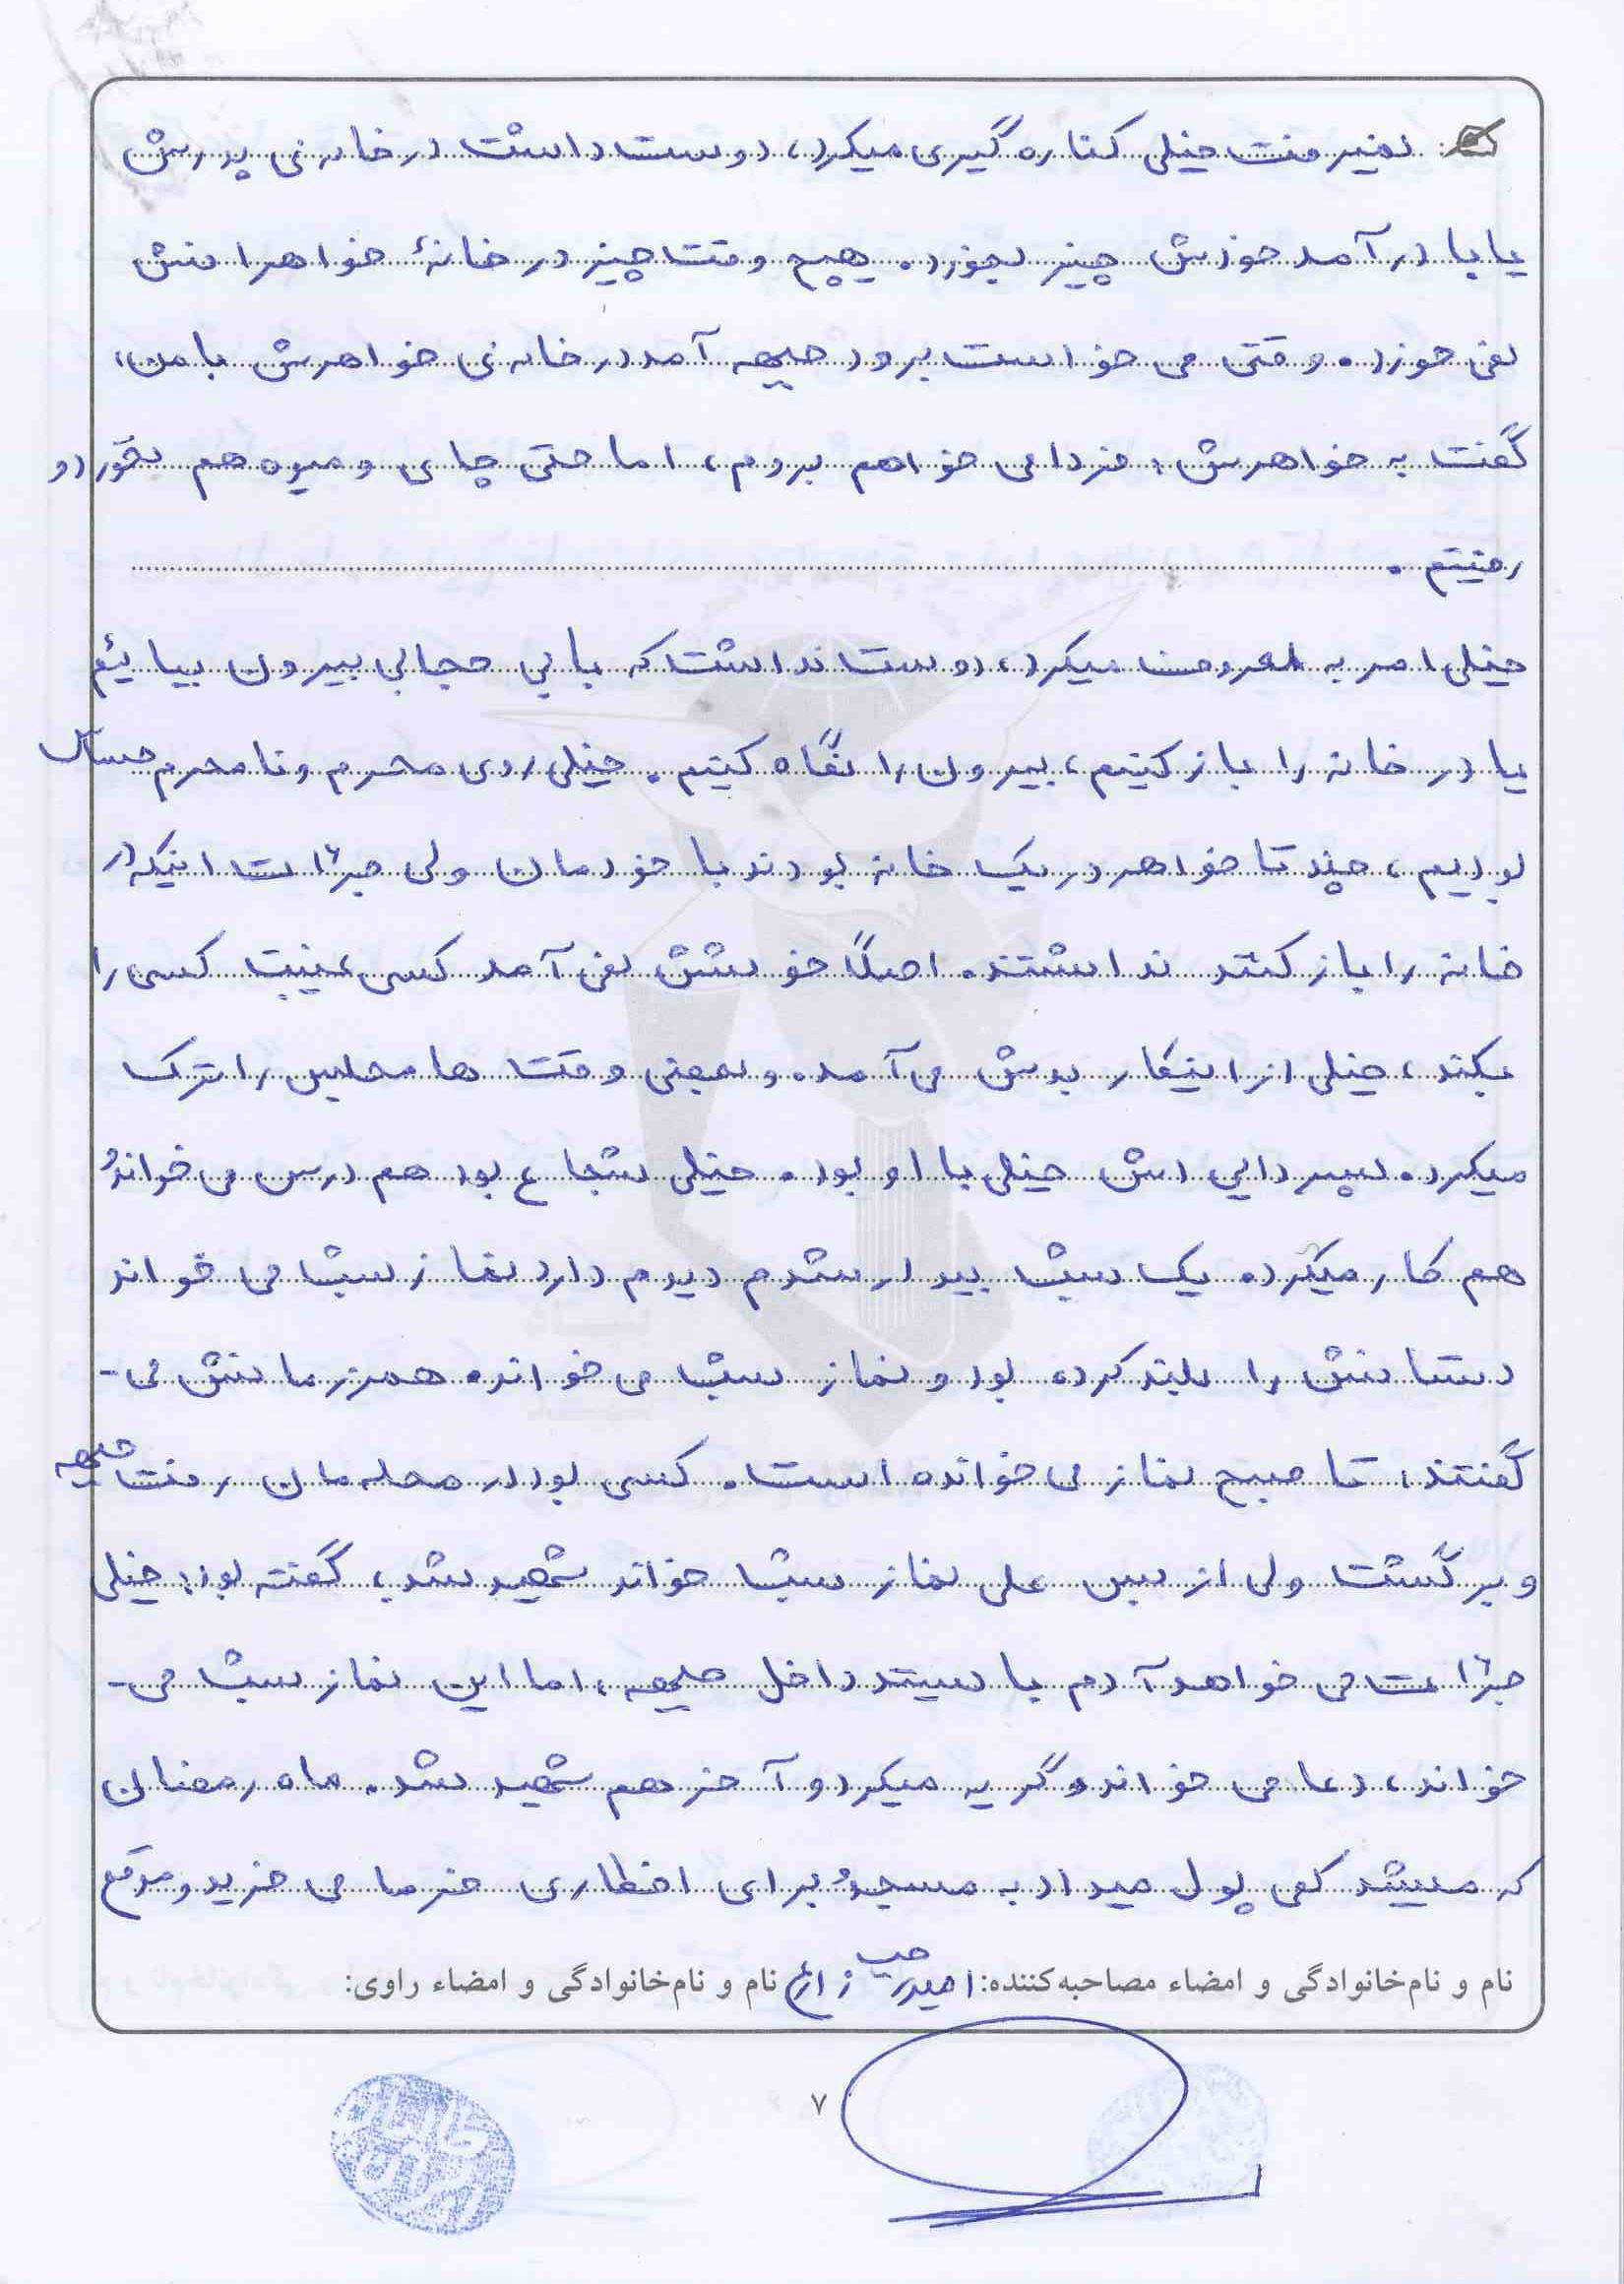 نمیرفت خیلی کناره گیری میکرد، دوست داشت در خانه ی پدرش
یا با درآمد خودش چیز بخورد. هیچ وقت چیز در خانهٔ خواهرانش
نمی خورد. وقتی می خواست برود جبهه آمد در خانه ی خواهرش با من،
گفت به خواهرش: فردا می خواهم بروم، اما حتی چای و میوه هم نخورد و
رفتیم.
خیلی امر به معروف میکرد، دوست نداشت که با بی حجابی بیرون بیائیم
یا در خانه را باز کنیم، بیرون را نگاه کنیم. خیلی روی محرم و نامحرم حساس
بودیم، چند تا خواهر در یک خانه بودند با خودمان ولی جرئات اینکه در
خانه را باز کنند نداشتند. اصلاً خوشش نمی آمد کسی غیبت کسی را
بکند، خیلی از اینکار بدش می آمد. و بعضی وقت ها مجلس را ترک
میکرد. پسر دایی اش خیلی با او بود. خیلی شجاع بود هم درس می خواند و
هم کار میکرد. یک شب بیدار شدم دیدم دارد نماز شب می خواند
دستانش را بلند کرده بود و نماز شب می خواند. همرزمانش می-
گفتند: تا صبح نماز می خوانده است. کسی بود در محله مان رفت جبهه
و برگشت ولی از بس علی نماز شب خواند شهید شد، گفته بود: خیلی
جرئات می خواهد آدم بایستد داخل جبهه، اما این نماز شب می-
خواند، دعا می خواند و گریه میکرد و آخر هم شهید شد. ماه رمضان
که میشد کمی پول میداد به مسجد و برای افطاری خرما می خرید و موقع
نام و نام‌خانوادگی و امضاء مصاحبه‌کننده: نام و نام‌خانوادگی و امضاء راوی:
۷